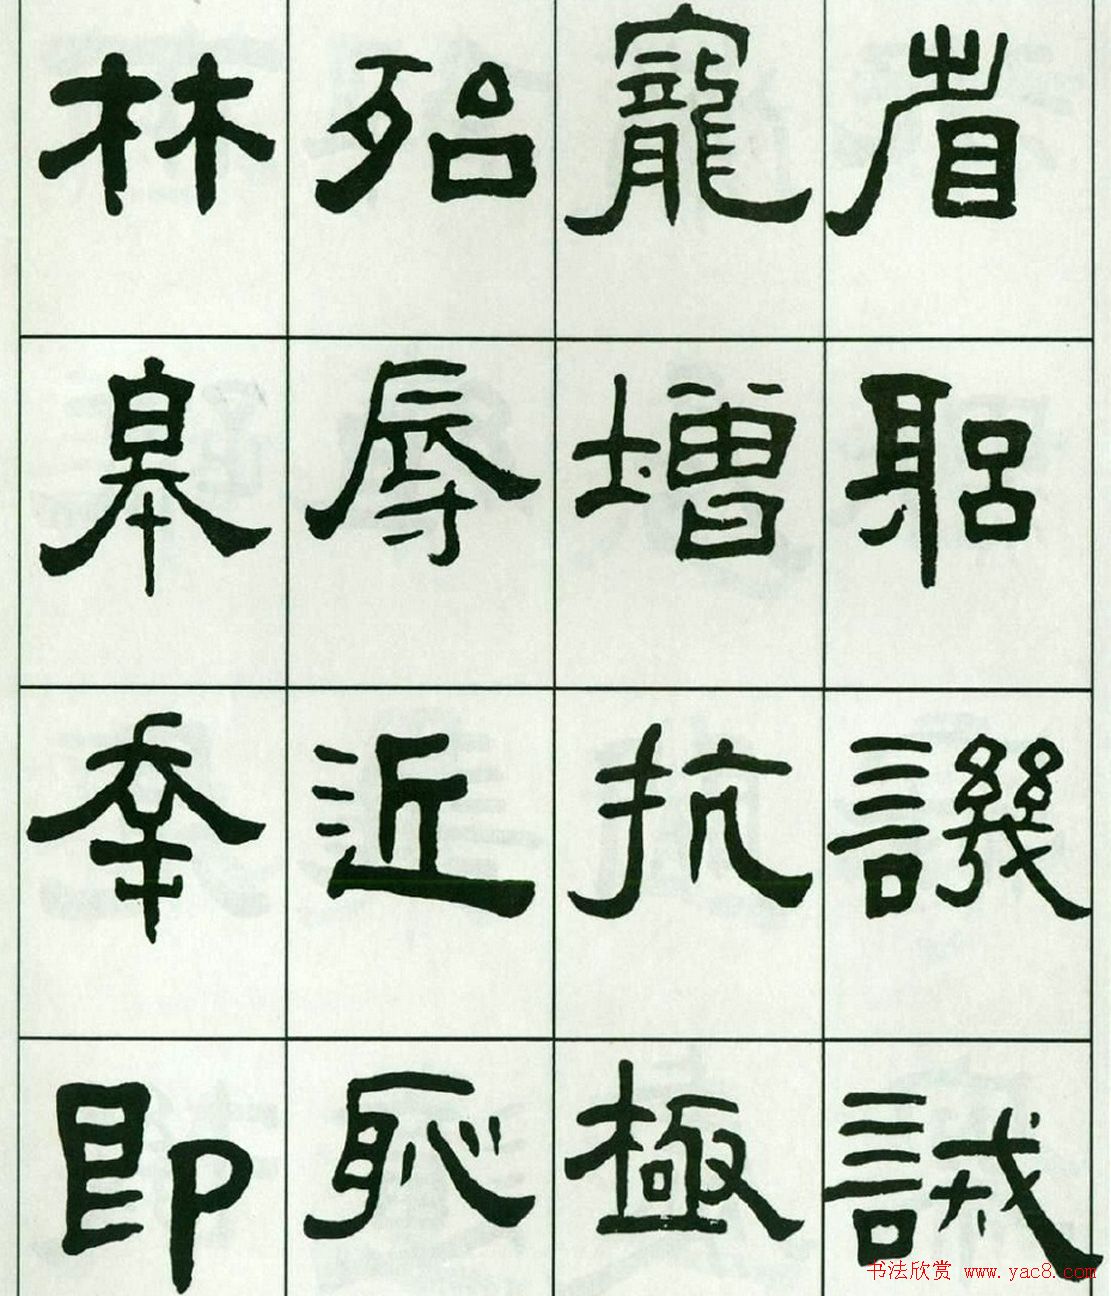 省躳譏誡
寵增抗極
殆辱近恥
林皋幸即
书法欣赏 www.yac8.com